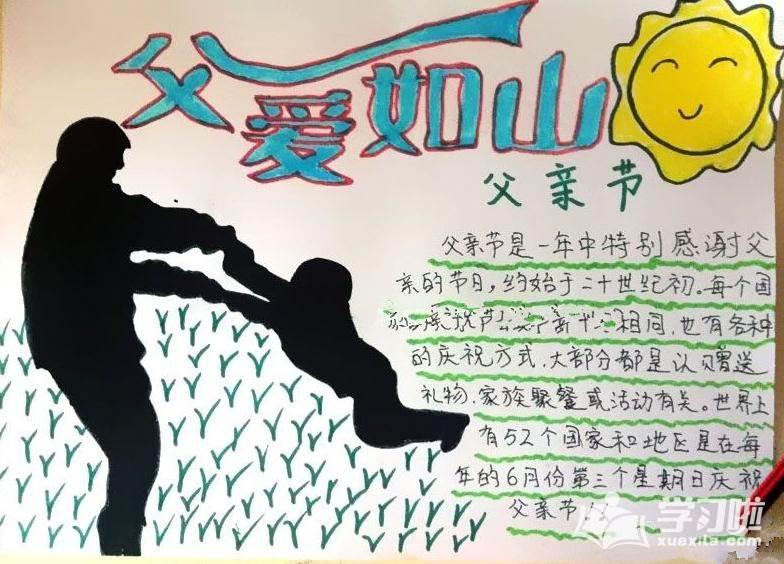 父爱如山
父亲节
父亲节是一年中特别感谢父
亲的节日，约始于二十世纪初。每个国
相同，也有各种
的庆祝方式，大部分都是认贈送
礼物、家族聚餐或活动有关。世界上
有52个国家和地区是在每
年的6月份第三个星期日庆祝
父亲节
学习啦
xuexila.com